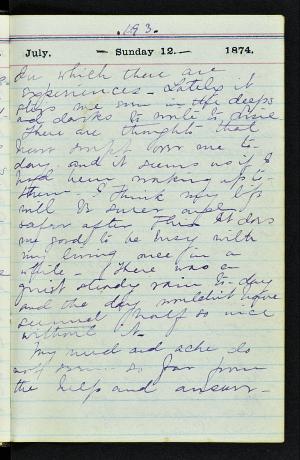 193.
July. — Sunday 12. — 1874.
in which there are
experiences – Lately it
me in the deeps
and darks to
There are thoughts that
over me to-
day, and it seems as if I
had been waking up to
them – I think my life
will be surer and
safer after this It does
me good to be busy with
my living once in a
while – There was a
quiet steady rain to-day
and the day wouldn't have
seemed half so nice
without it –
My need and ache do
not seem so far from
the help and answer –